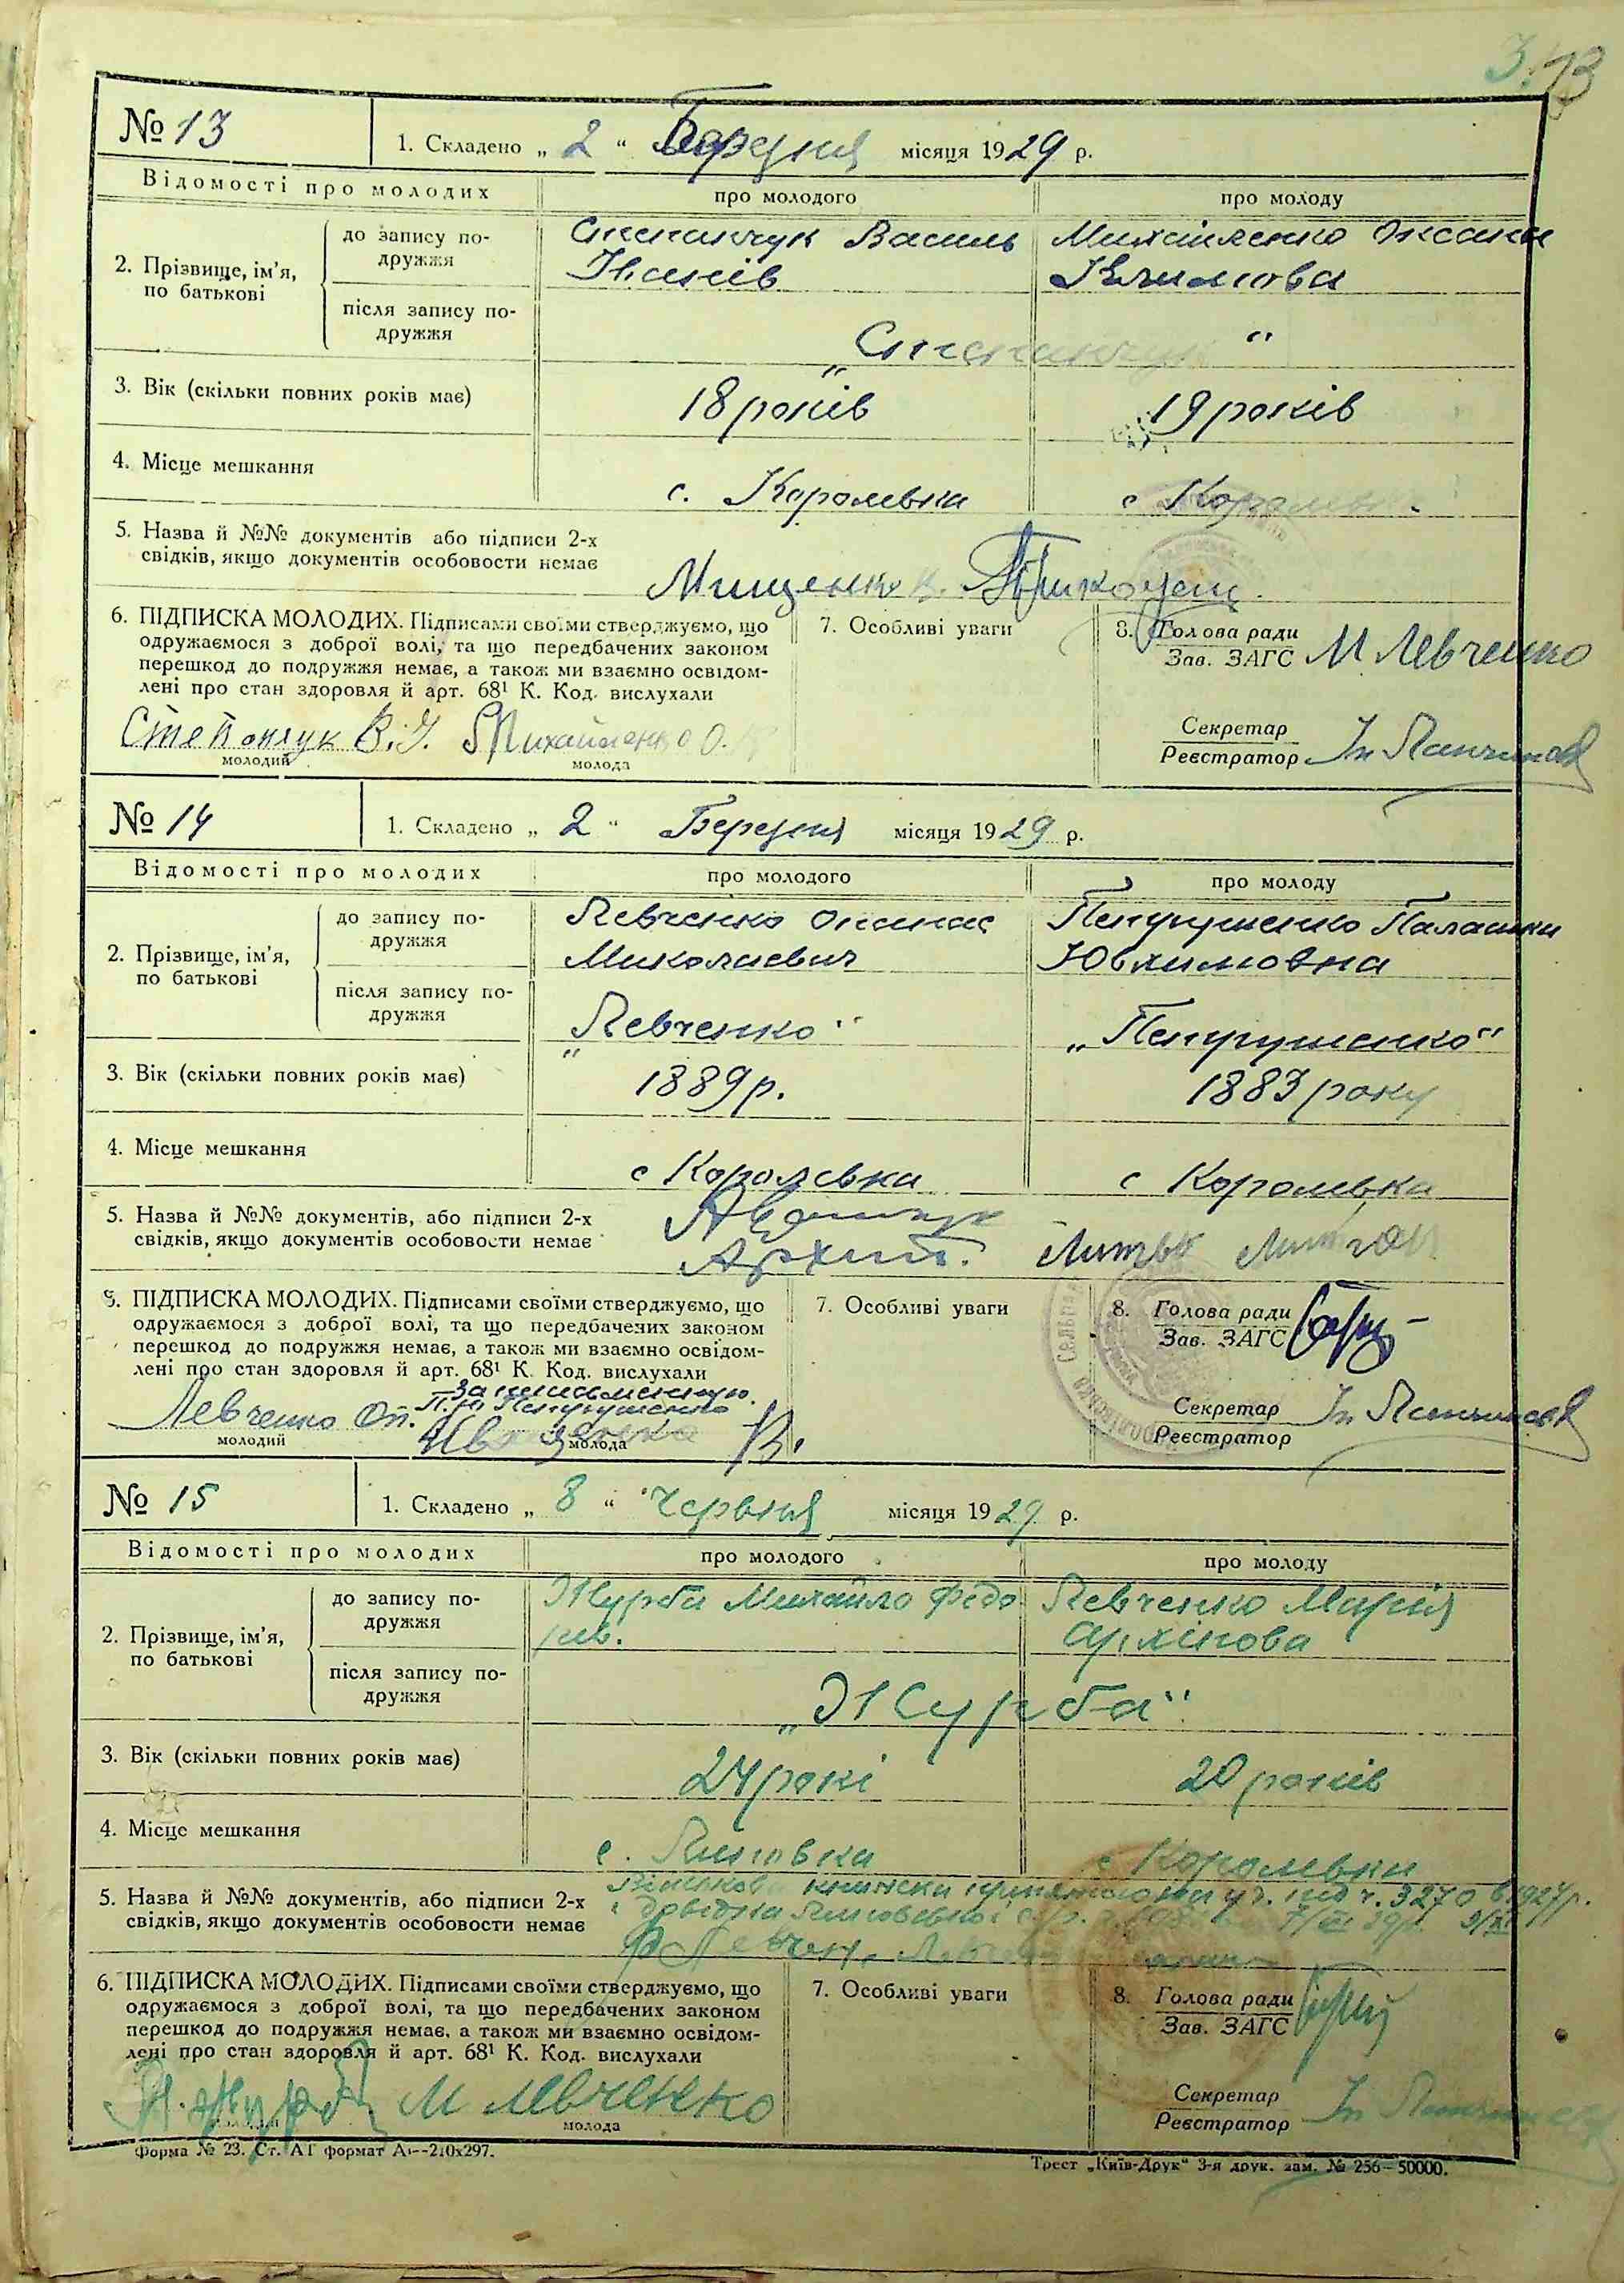 3. 13
№ 13
1. Складено „ 2 “ Березня місяця 1929 р.
Відомості про молодих
про молодого
про молоду
2. Прізвище, ім'я, по батькові
до запису подружжя
Степанчук Василь
Іванів
Михайленко Оксана
Климова
після запису подружжя
„Степанчук“
3. Вік (скільки повних років має)
18 років
19 років
4. Місце мешкання
с. Королевка
с Королевка
5. Назва й №№ документів або підписи 2-х
свідків, якщо документів особовости немає
Мищенко
6. ПІДПИСКА МОЛОДИХ. Підписами своїми стверджуємо, що
одружаємося з доброї волі, та що передбачених законом
перешкод до подружжя немає, а також ми взаємно освідом-
лені про стан здоровля й арт. 68¹ К. Код. вислухали
Степанчук В.І. Михайленко О.
молодий
молода
7. Особливі уваги
8. Голова ради
Зав. ЗАГС
М Левченко
Секретар
Реєстратор
№ 14
1. Складено „ 2 “ Березня місяця 1929 р.
Відомості про молодих
про молодого
про молоду
2. Прізвище, ім'я,
по батькові
до запису по-
дружжя
Левченко Опанас
Миколаевич
Петрушенко Палашка
Ювхимовна
після запису по-
дружжя
„Левченко“
„Петрушенко“
3. Вік (скільки повних років має)
1889 р.
1883 року
4. Місце мешкання
с Королевка
с Королевка
5. Назва й №№ документів, або підписи 2-х
свідків, якщо документів особовости немає
Архип.
6. ПІДПИСКА МОЛОДИХ. Підписами своїми стверджуємо, що
одружаємося з доброї волі, та що передбачених законом
перешкод до подружжя немає, а також ми взаємно освідом-
лені про стан здоровля й арт. 68¹ К. Код. вислухали
Левченко Оп.
П.Ю Петрушенко
молодий
молода
7. Особливі уваги
8. Голова ради
Зав. ЗАГС
Секретар
Реєстратор
№ 15
1. Складено „ 8 “ Червня місяця 1929 р.
Відомості про молодих
про молодого
про молоду
2. Прізвище, ім'я,
по батькові
до запису по-
дружжя
Журба Михайло Федо
рів.
Левченко Марія
Архіпова
після запису по-
дружжя
„Журба“
3. Вік (скільки повних років має)
24 рокі
20 років
4. Місце мешкання
с. Липовка
с Королевка
5. Назва й №№ документів, або підписи 2-х
свідків, якщо документів особовости немає
6. ПІДПИСКА МОЛОДИХ. Підписами своїми стверджуємо, що
одружаємося з доброї волі, та що передбачених законом
перешкод до подружжя немає, а також ми взаємно освідом-
лені про стан здоровля й арт. 68¹ К. Код. вислухали
М Левченко
молода
7. Особливі уваги
8. Голова ради
Зав. ЗАГС
Секретар
Реєстратор
Форма № 23. Ст. АІ формат А₄--210х297.
Трест „Київ-Друк“ 3-я друк. зам. № 256—50000.